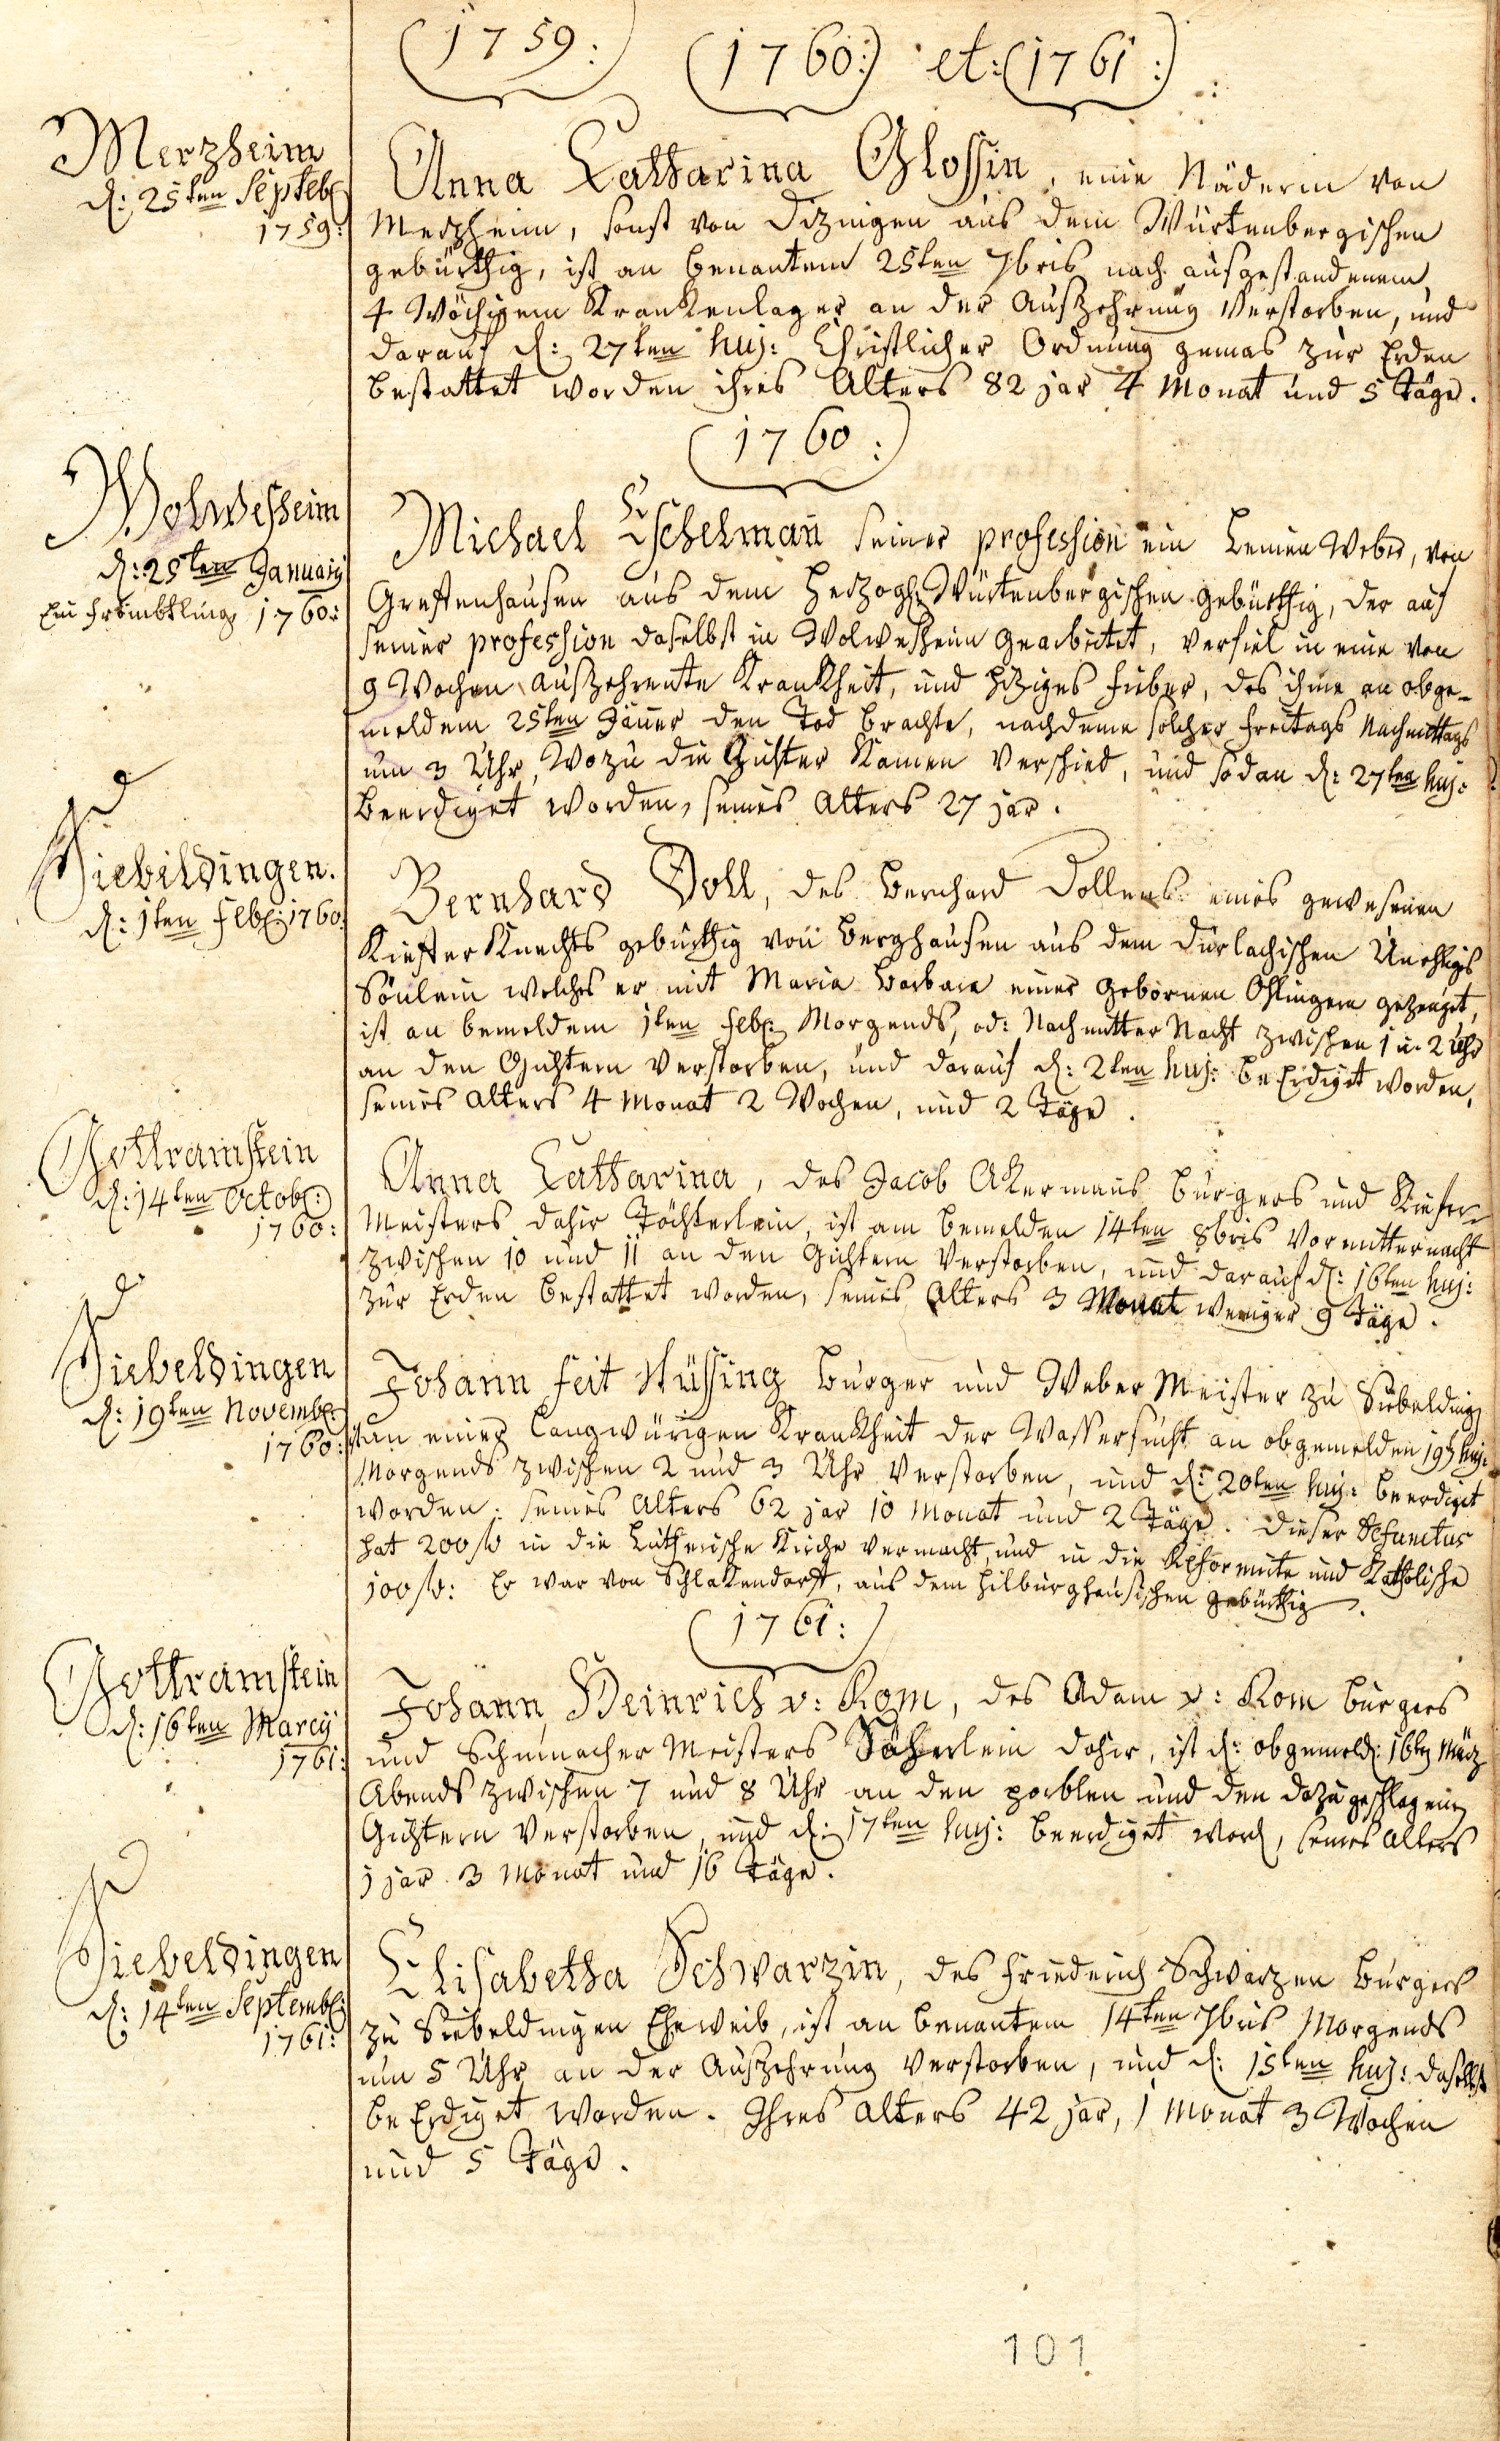 (1759:) (1760:) et: (1761:)
Merzheim
d: 25ten Septeb:
1759:
Anna Catharina Glossin, eine Näderin von
Merzheim, sonst von Dizingen aus dem Würtenbergischen
gebürthig, ist an benantem 25ten 7bris nach ausgestandenem
4 Wöchigem Krankenlager an der Auszehrung verstorben, und
darauf d: 27ten huj: Christlicher Ordnung gemas zur Erden
bestattet worden ihres Alters 82 jar 4 Monat und 5 Täge.
(1760:)
Wolmesheim
d: 25ten January
Ein frembtling 1760:
Michael Eschelman̄ seiner profession ein Leinen Weber, von
Greffenhausen aus dem Herzogl: Würtenbergischen gebürthig, der auf
seiner profession daselbst in Wolmesheim gearbeitet, verfiel in eine von
9 Wochen auszehrente Krankheit, und hiziges fieber, des ihme an obge-
meldem 25ten Jäner den Tod brachte, nachdeme solcher freitags Nachmittags
um 3 Uhr, Wozu die Gichter kamen verschied, und sodan d: 27ten huj:
beerdiget worden, seines Alters 27 jar.
Siebildingen.
d: 1ten feb: 1760:
Bernhard Doll, des Bernhard Dollens eines gewesenen
Kieffer Knechts gebürthig von Berghausen aus dem Durlachischen Unehligs
Sönlein welches er mit Maria Barbara einer gebornen Öhlingern gezeuget,
ist an bemeldem 1ten feb: Morgends, od: Nachmitter Nacht zwischen 1 u. 2 Uhr
an den Gichtern verstorben, und darauf d: 2ten huj: beErdiget worden,
seines Alters 4 Monat 2 Wochen, und 2 Täge.
Gottramstein
d: 14ten Octob:
1760:
Anna Catharina, des Jacob Akermans burgers und Kiefer
Meisters dahir Töchterlein, ist am bemelden 14ten 8bris Vormitternacht
zwischen 10 und 11 an den Gichtern verstorben, und darauf d: 16ten huj:
zur Erden bestattet worden, seines Alters 3 Monat weniger 9 Täge.
Siebeldingen
d: 19ten Novemb:
1760:
Johann Feit Nüssing burger und Weber Meister zu Siebelding
ist an einer langwürigen Krankheit der Wassersucht an obgemelden 19t huj:
Morgends zwischen 2 und 3 Uhr verstorben, und d: 20ten huj: beerdiget
worden. seines Alters 62 jar 10 Monat und 2 Täge. dieser Defunctus
hat 200 fl in die Lutherische Kirche vermacht, und in die Reformirte und Katholische
100 fl: Er war von Schlakendorff, aus dem Hilburghausischen gebürthig.
(1761:)
Gottramstein
d: 16ten Marcÿ
1761:
Johann Heinrich v: Rom, des Adam v: Rom burgers
und Schumacher Meisters Söhnlein dahir, ist d: obgemeld: 16t März
Abends zwischen 7 und 8 Uhr an den porblen und den dazu geschlagenen
Gichtern verstorben, und d: 17ten huj: beerdiget word, seines Alters
1 jar 3 Monat und 16 Täge.
Siebeldingen
d: 14ten Septemb:
1761:
Elisabetha Schwarzin, des Friederich Schwarzen burgers
zu Siebeldingen Eheweib, ist an benantem 14ten 7bris Morgends
um 5 Uhr an der Auszehrung verstorben, und d: 15ten huj: daselbst
beErdiget worden. Ihres Alters 42 jar, 1 Monat 3 Wochen
und 5 Täge.
101